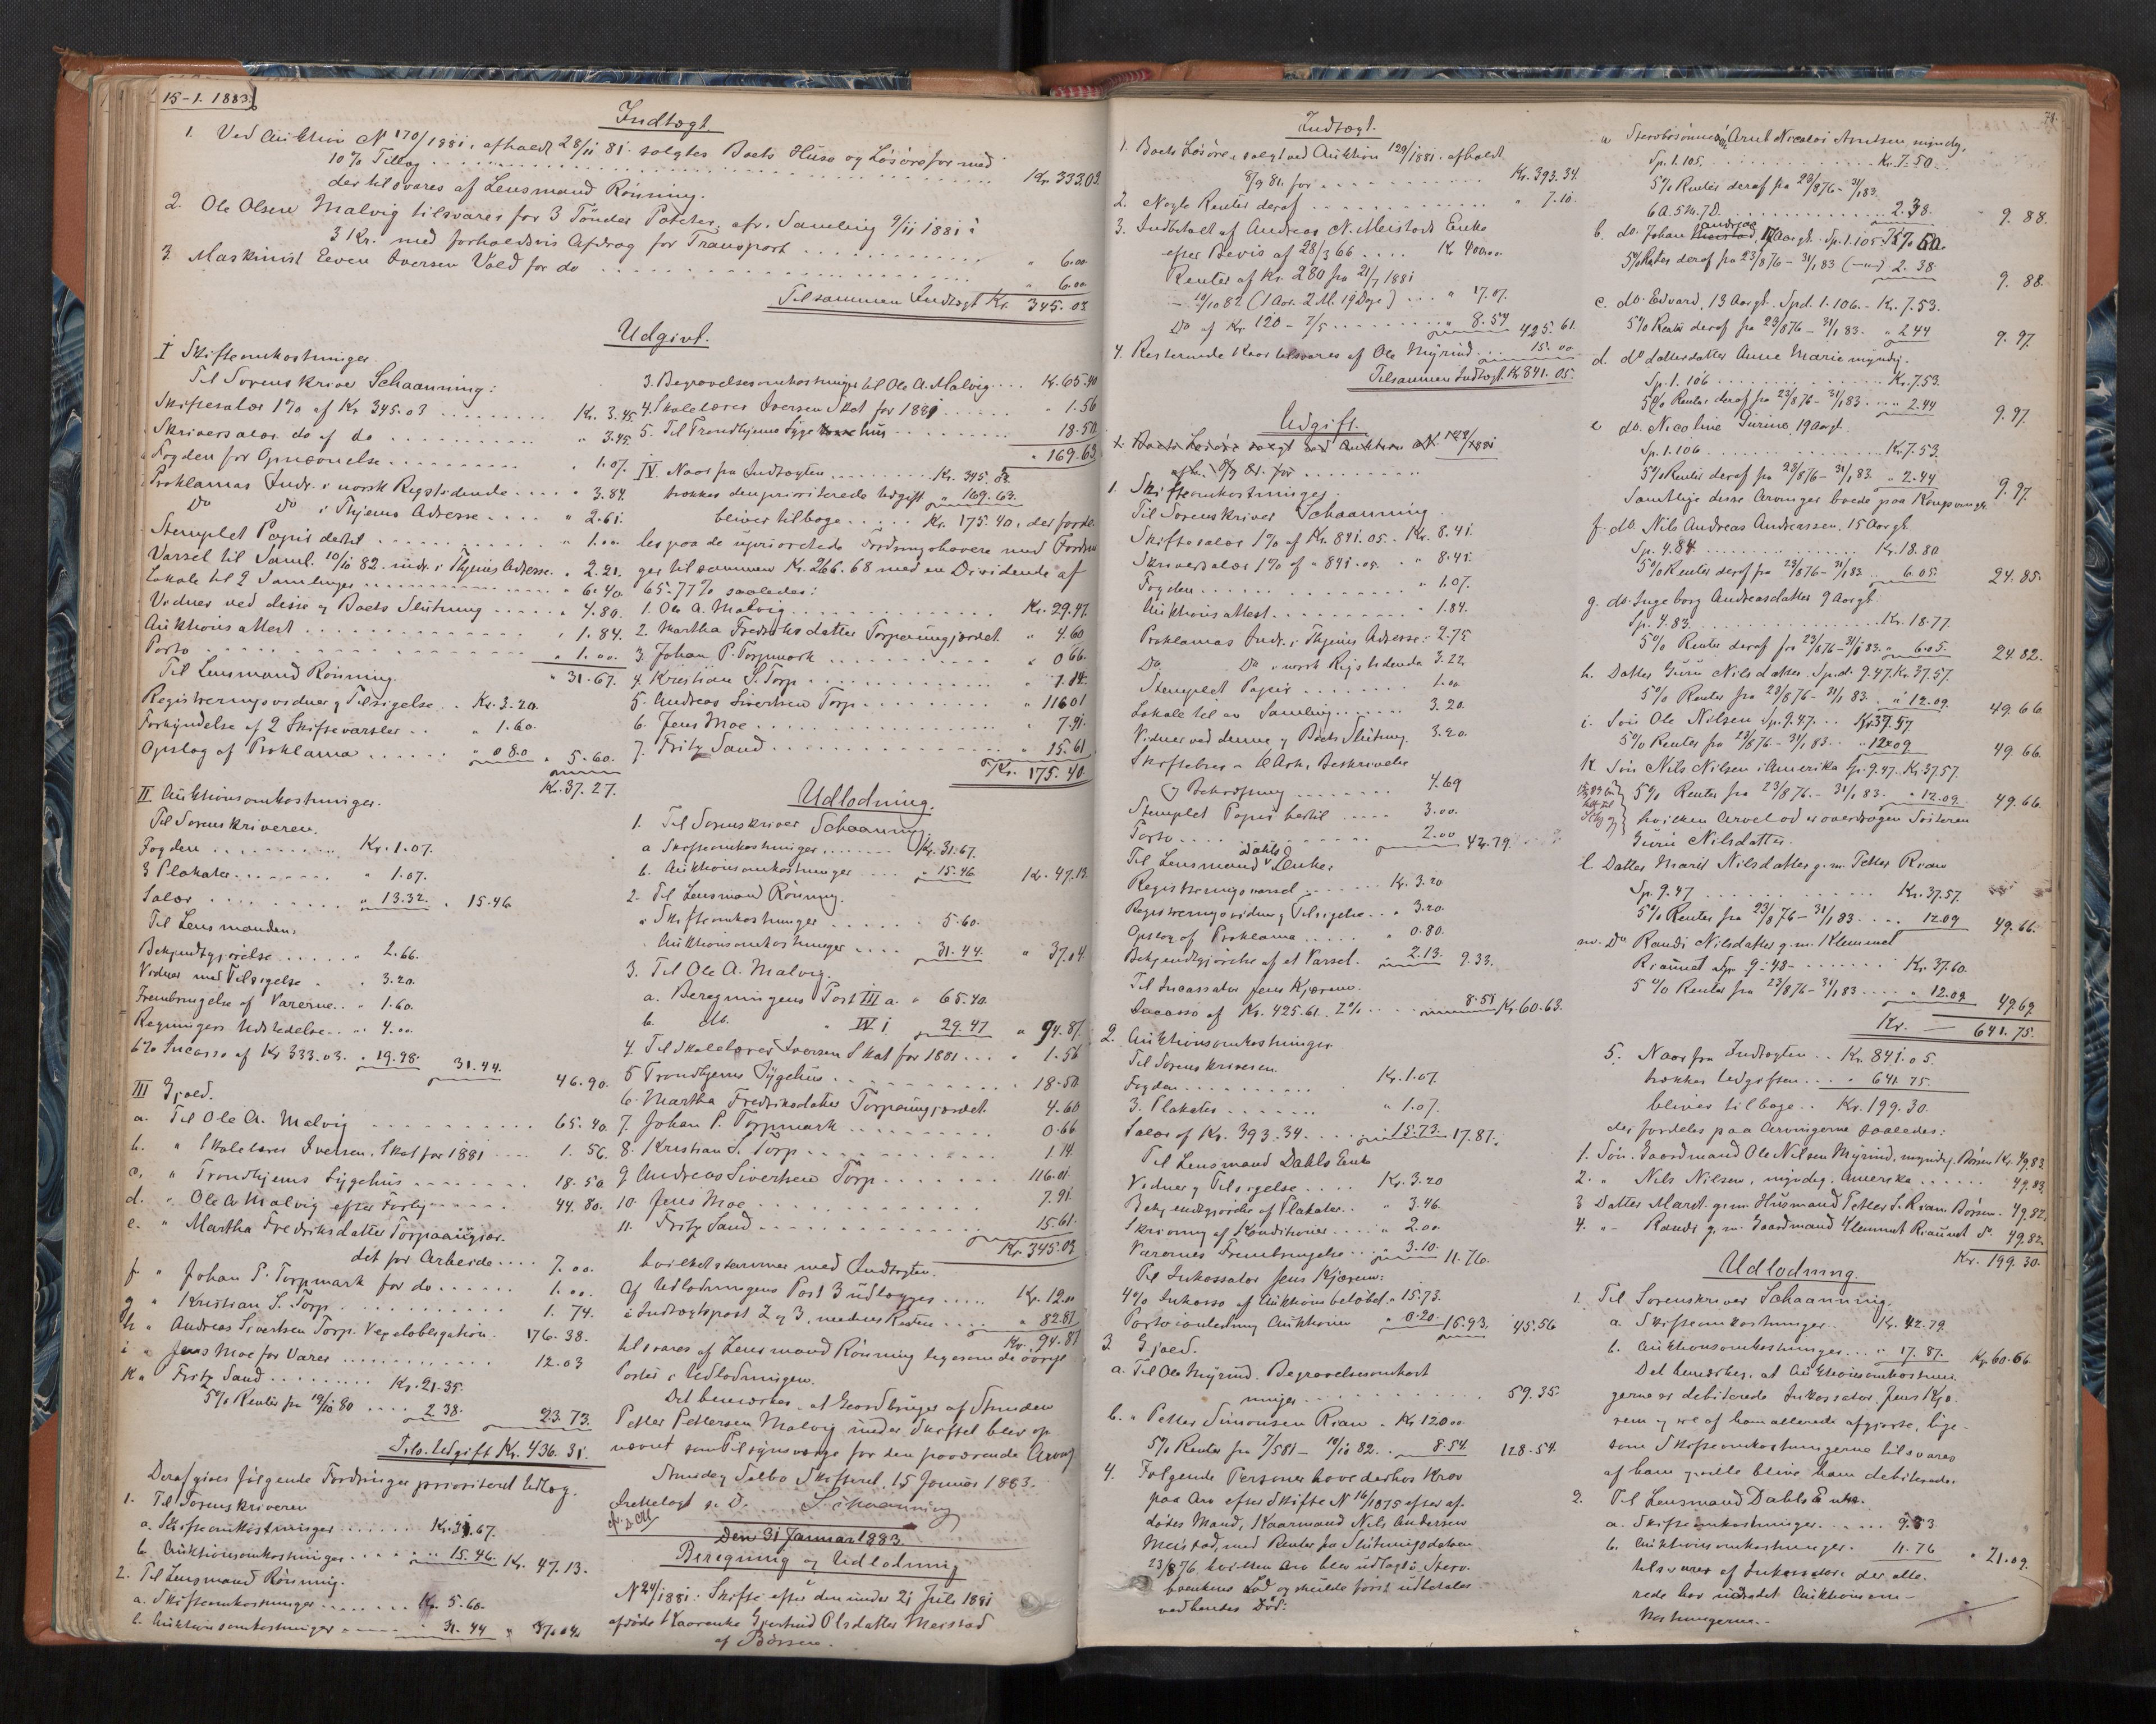 15-1. 1883.
Indtægt
1. Ved Auktion N 170/1881, afholdt 28/11 81. solgtes Boets Huse og Løsøre for med
10% Tillæg Kr. 333.03.
der tilsvares af Lensmand Rønning.
2. Ole Olsen Malvig tilsvarer for 3 Tønder Poteter, cfr. Samling 9/11 1881 à
3 Kr. med forholdsvis Afdrag for Transport " 6.00
3 Maskinist Even Iversen Vold for do " 6.00
Tilsammen Indtægt Kr. 345.03
Udgivt.
I Skifteomkostninger.
Til Sorenskriver Schaanning:
Skiftesalær 1% af Kr. 345.03 Kr. 3.45
Skriversalær do af do " 3.45
Fogden for Opnævnelse " 1.07.
Proklamas Indr. i norsk Rigstidende " 3.84.
Do Do i Thjems Adresse " 2.61.
Stemplet Papir dertil " 1.00
Varsel til Saml. 10/10 82. indr. i Thjems Adresse. " 2.21.
Lokale til 2 Samlinger " 6.40
Vidner ved disse og Boets Slutning " 4.80.
Auktionsattest " 1.84.
Porto " 1.00.
" 31.67.
Til Lensmand Rønning.
Registreringsvidner & Tilsigelse Kr. 3.20.
Forkyndelse af 2 Skiftevarsler " 1.60.
Opslag af Proklama " 0.80 " 5.60.
Kr. 37.27.
II Auktionsomkostninger.
Til Sorenskriveren.
Fogden Kr. 1.07.
3 Plakater " 1.07.
Salær " 13.32. " 15.46
Til Lensmanden:
Bekjendtgjørelse " 2.66.
Vidner med Tilsigelse " 3.20.
Frembringelse af Varerne " 1.60.
Regningers Udstedelse " 4.00
6% Incasso af Kr 333.03. " 19.98. 31.44.
46.90.
III Gjæld.
a. Til Ole A. Malvig 65.40
b. " Skolelærer Iversen, Skat for 1881 1.56.
c. " Trondhjems Sygehus 18.50
d. " Ole A. Malvig efter Forlig 44.80.
e. " Martha Fredriksdatter Torpaaugjær-
det for Arbeide 7.00.
f " Johan P. Torpmark for do 1.00.
g " Kristian S. Torp 1.74.
h " Andreas Sivertsen Torp. Vexelobligation. 176.38.
i " Jens Moe for Varer 12.03
k " Fritz Sand Kr. 21.35.
5% Renter fra 10/10 80 2.38. 23.73.
Tils. Udgift Kr. 436.31.
Deraf gives følgende Fordringer prioriteret Udlæg.
1. Til Sorenskriveren
a. Skifteomkostninger Kr. 31.67.
b. Auktionsomkostninger " 15.46. Kr. 47.13.
2. Til Lensmand Rønning.
a. Skifteomkostninger Kr. 5.60.
b. Auktionsomkostninger " 31.44 " 37.04.
3. Begravelsesomkostninger til Ole A. Malvig Kr. 65.40
4. Skolelærer Iversen Skat for 1881 " 1.56
5. Til Trondhjems Sygehus 18.50
" 169.63
IV Naar fra Indtægten Kr. 345.03.
trækkes den prioriterede Udgift " 169.63.
bliver tilbage Kr. 175.40, der forde-
les paa de upriorterede Fordringshavere med Fordrin
ger tilsammen Kr. 266.68 med en Dividende af
65.77% saaledes:
1. Ole A. Malvig Kr. 29.47.
2. Martha Fredriksdatter Torpaaugjærdet " 4.60
3. Johan P. Torpmark " 0.66.
4. Kristian S. Torp " 1.14.
5. Andreas Sivertsen Torp " 116.01
6. Jens Moe " 7.91.
7. Fritz Sand " 15.61
Kr. 175.40.
Udlodning.
1. Til Sorenskriver Schaanning.
a Skifteomkostninger Kr. 31.67.
b. Auktionsomkostninger " 15.46. Kr. 47.13.
2. Til Lensmand Rønning.
a Skifteomkostninger 5.60.
Auktionsomkostninger 31.44. " 37.04.
3. Til Ole A. Malvig.
a. Beregningens Post III a. " 65.40.
b. do. " IV 1 29.47 " 94.87.
4. Til Skolelærer Iversen Skat for 1881 " 1.56
5 Trondhjems Sygehus " 18.50
6. Martha Fredriksdatter Torpaaugjærdet. 4.60
7. Johan P. Torpmark 0.66
8. Kristian S. Torp 1.14.
9 Andreas Sivertsen Torp 116.01.
10. Jens Moe 7.91.
11. Fritz Sand 15.61.
Kr. 345.03
hvilket stemmer med Indtægten.
Af Udlodningens Post 3 udlægges Kr. 12.00
i Indtægtspost 2 & 3, medens Resten " 82.87
Kr. 94.87
tilsvares af Lensmand Rønning ligesom de øvrige
Poster i Udlodningen.
Det bemærkes, at Gaardbruger af Stranden
Petter Pettersen Malvig under Skiftet blev op
nævnt som Tilsynsværge for den fraværende Arving
Strinda & Selbo Skifteret. 15 Januar 1883.
Indtelagt s. D. Schaanning
Den 31 Januar 1883.
Beregning og Udlodning
N 24/1881: Skifte efter den under 21 Juli 1881
afdøde Kaarenke Gjertrud Olsdatter Meistad
af Børsen.
Indtægt.
1. Boets Løsøre, solgt ved Auktion 129/1881. afholdt
8/9 81. for Kr. 393.34.
2. Nogle Renter deraf " 7.10.
3. Indbetalt af Andreas N. Meistads Enke
efter Bevis af 28/3 66 Kr. 400.00
Renter af Kr. 280 fra 21/7 1881
- 10/10 82 (1 Aar. 2 M. 19 Dage) " 17.07.
Do af Kr. 120 - 7/5 " 8.54 425.61.
4. Resterende Kaar tilsvares af Ole Myrind 15.00
Tilsammen Indtægt Kr 841.05.
Udgift.
1. Boets Løsøre solgt ved Auktion N 129/1881
afh. 8/9 81. for
1. Skifteomkostninger.
Til Sorenskriver Schaanning.
Skiftesalær 1% af Kr. 841.05. Kr. 8.41.
Skriversalær 1% af " 841.05. " 8.41.
Fogden " 1.07.
Auktionsattest " 1.84.
Proklamas Indr. i Thjems Adresse: 2.75
Do Do i norsk Rigstidende 3.22
Stemplet Papir 1.00
Lokale til en Samling 3.20.
Vidner ved denne & Boets Slutning. 3.20.
Skiftebrev 6 Ark. Beskrivelse
& Bekræftning 4.69
Stemplet Papir hertil 3.00.
Porto 2.00 42.79.
Til Lensmand Dahls Enke:
Registreringsvarsel Kr. 3.20
Registreringsvidner & Tilsigelse " 3.20.
Opslag af Proklama " 0.80.
Bekjendtgjørelse af et Varsel " 2.13. 9.33.
Til Incassator Jens Kjærem.
Incasso af Kr. 425.61. 2% 8.51 Kr. 60.63.
2. Auktionsomkostninger.
Til Sorenskriveren.
Fogden Kr. 1.07.
3. Plakater " 1.07.
Salær af Kr. 393.34 " 15.73. 17.87.
Til Lensmand Dahls Enke
Vidner & Tilsigelse Kr. 3.20
Bekjendtgjørelse af Plakater " 3.46.
Skrivning af Konditioner " 2.00.
Varernes Frembringelse " 3.10. 11.76.
Til Inkassator Jens Kjærem:
4% Inkasso af Auktionsbeløbet " 15.73.
Porto i anledning Auktionen " 0.20. 15.93. 45.56
3. Gjæld.
a. Til Ole Myrind. Begravelsesomkost
ninger 59.35.
b. " Petter Simonsen Rian Kr 120.00
5% Renter fra 7/5 81 - 10/10 82 8.54. 128.54.
4. Følgende Personer have derhos Krav
paa Arv efter Skifte N 16/1875 efter af-
døde Mand, Kaarmand Nils Andersen
Meistad, med Renter fra Slutningsdatoen
23/8 76, hvilken Arv blev udlagt i Sterv-
boenkens Lod og skulde først udbetales
ved hendes Død:
78.
a Stervbosønnesøn Arnt Nicolai Arntsen myndig.
Sp. 1.105. Kr. 7.50.
5% Renter deraf fra 23/8 76 - 31/1 83.
6 A. 5 M. 7 D. 2.38. " 9.88.
b. do. Johan Andreas, 17 Aargl. Sp. 1.105. Kr. 7.50.
5% Renter deraf fra 23/8 76 - 31/1 83 2.38. 9.88.
c. do. Edvard, 13 Aargl. Spd. 1.106. Kr. 7.53.
5% Renter deraf fra 23/8 76 - 31/1 83. " 2.44 9.97.
d. do datterdatter Anne Marie myndig.
Sp. 1.106 Kr. 7.53.
5% Renter deraf fra 23/8 76 - 31/1 83. " 2.44 9.97.
e do. Nicoline Gurine, 19 Aargl.
Sp. 1.106. Kr. 7.53.
5% Renter deraf fra 23/8 76 - 31/1 83 " 2.44 9.97.
Samtlige disse Arvinger boede paa Kongsvinger
f. do. Nils Andreas Andreassen, 15 Aargl.
Sp. 4.84 Kr. 18.80
5% Renter deraf fra 23/8 76 - 31/1 83 6.05. 24.85.
g. do. Ingeborg Andreasdatter 9 Aargl:
Sp. 4.83. Kr. 18.77.
5% Renter deraf fra 23/8 76 - 31/1 83. " 6.05. 24.82.
h. Datter Guru Nilsdatter. Spd. 9.47. Kr. 37.57.
5% Renter fra 23/8 76 - 31/1 83. " 12.09. 49.66
i. Søn Ole Nilsen Sp. 9.47. Kr. 37.57
5% Renter fra 23/8 76 - 31/1 83 " 12.09 49.66.
k. Søn Nils Nilsen i Amerika Sp. 9.47. Kr. 37.57.
5% Renter fra 23/8 76 - 31/1 83. " 12.09. 49.66.
hvilken Arvelod er overdragen Søsteren
Guru Nilsdatter.
l. Datter Marit Nilsdatter g. m. Petter Rian
Sp. 9.47 Kr. 37.57.
5% Renter fra 23/8 76 - 31/1 83 12.09 49.66.
m. Do Randi Nilsdatter g. m. Klemmet
Riaunet Sp. 9.48 Kr. 37.60.
5% Renter fra 23/8 76 - 31/1 83 " 12.09 49.69.
Kr. 641.75.
5. Naar fra Indtægten Kr. 841.05
trækkes Udgiften " 641.75.
bliver tilbage Kr. 199.30.
der fordeles paa Arvingerne saaledes:
1. Søn. Gaardmand Ole Nilsen Myrind, myndig. Børsen Kr. 49.83.
2. " Nils Nilsen, myndig. Amerika 49.83.
3 Datter Maret g. m. Husmand Petter S. Rian. Børsen. 49.82.
4. " Randi g. m. Gaardmand Klemmet Riaunet do. 49.82.
Kr. 199.30.
Udlodning.
1. Til Sorenskriver Schaanning.
a. Skifteomkostninger Kr. 42.79
b. Auktionsomkostninger " 17.87. Kr. 60.66
Det bemærkes, at Auktionsomkostnin-
gerne er debiterede Inkassator Jens Kjæ-
rem & ere af ham allerede afgjorte, lige-
som Skifteomkostningerne tilsvares
af ham & ville blive ham debiterede.
2. Til Lensmand Dahls Enke.
a. Skifteomkostninger 9.33
b. Auktionsomkostninger 11.76 " 21.09.
tilsvares af Inkassator der alle-
rede har udredet Auktionsom-
kostningerne.-